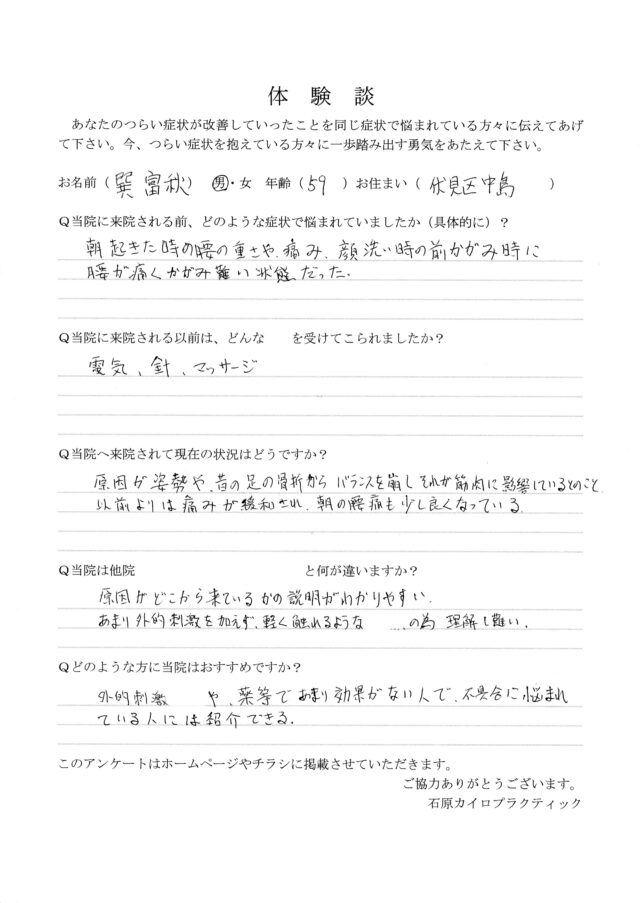 体 験 談
あなたのつらい症状が改善していったことを同じ症状で悩まれている方々に伝えてあげ
て下さい。今、つらい症状を抱えている方々に一歩踏み出す勇気をあたえて下さい。
お名前（巽 富秋）男・女 年齢（59）お住まい（伏見区中島）
Q当院に来院される前、どのような症状で悩まれていましたか（具体的に）？
朝起きた時の腰の重さや、痛み、顔洗い時の前かがみ時に
腰が痛くかがみ難い状態だった.
Q当院に来院される以前は、どんな を受けてこられましたか？
電気、針、マッサージ
Q当院へ来院されて現在の状況はどうですか？
原因が姿勢や、昔の足の骨折から バランスを崩し それが筋肉に影響しているとのこと
以前よりは痛みが緩和され、朝の腰痛も少し良くなっている.
Q当院は他院 と何が違いますか？
原因がどこから来ているかの説明がわかりやすい.
あまり外的刺激を加えず、軽く触れるような ...の為 理解し難い.
Qどのような方に当院はおすすめですか？
外的刺激 や、薬等であまり効果がない人で、不具合に悩まれ
ている人には紹介できる.
このアンケートはホームページやチラシに掲載させていただきます。
ご協力ありがとうございます。
石原カイロプラクティック